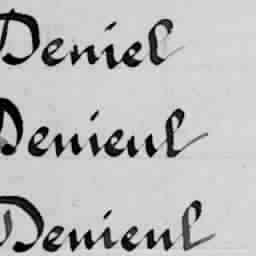 Deniel
Denienl
Denienl